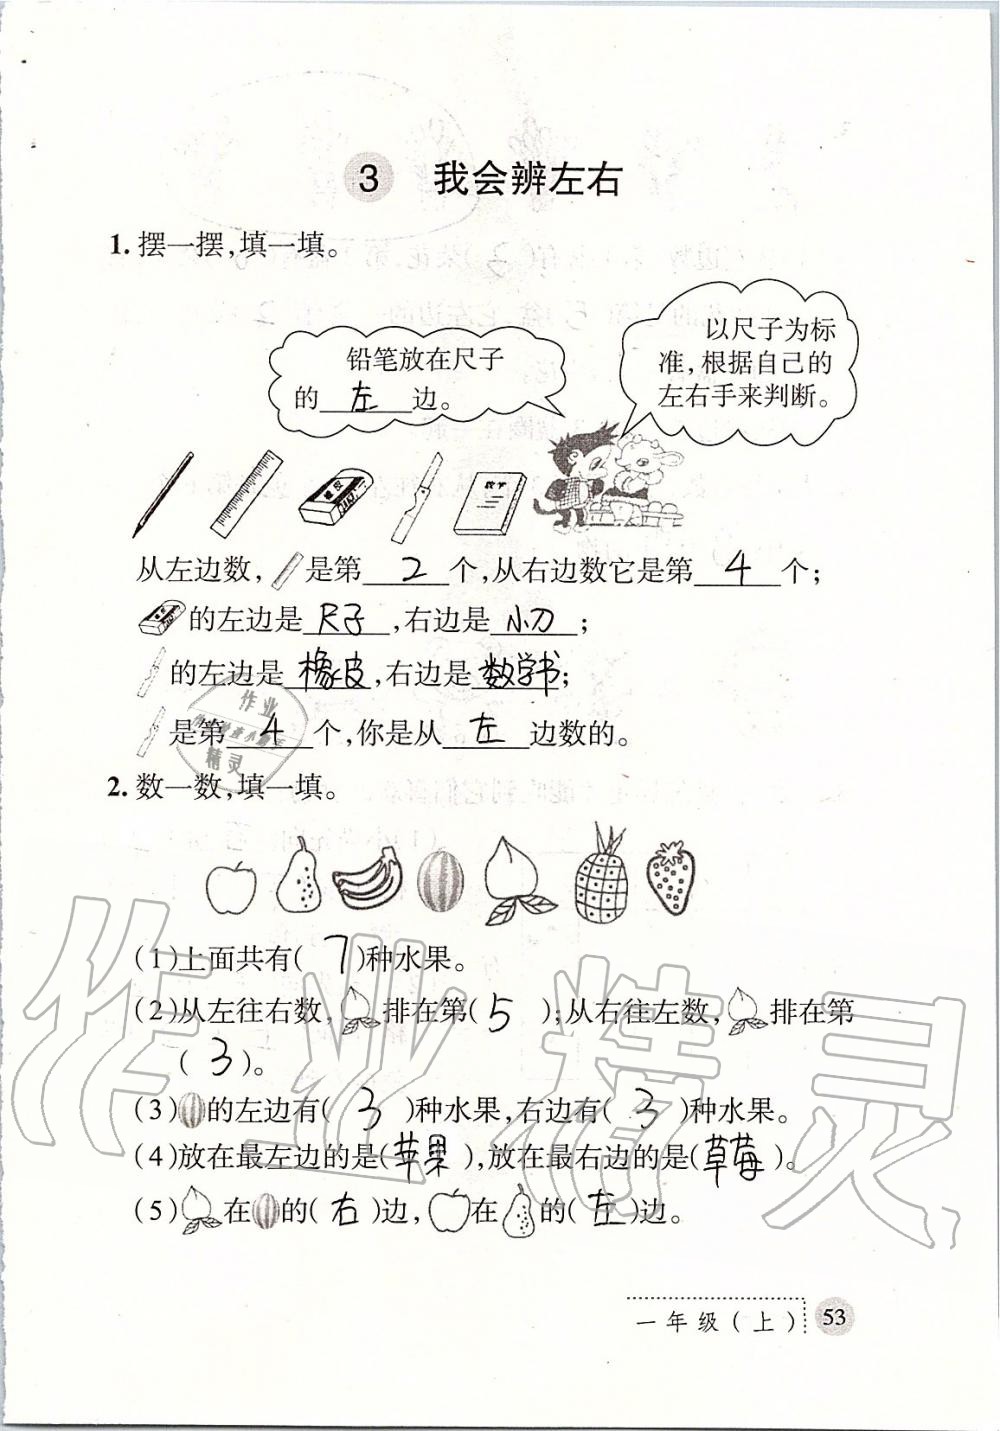 3 我会辨左右
1. 摆一摆,填一填。
铅笔放在尺子
的 左 边。
以尺子为标
准,根据自己的
左右手来判断。
橡皮
数学
从左边数, 是第 2 个,从右边数它是第 4 个;
的左边是 尺子 ,右边是 小刀 ;
的左边是 橡皮 ,右边是 数学书 ;
是第 4 个,你是从 左 边数的。
2. 数一数,填一填。
(1)上面共有( 7 )种水果。
(2)从左往右数, 排在第( 5 );从右往左数, 排在第
( 3 )。
(3) 的左边有( 3 )种水果,右边有( 3 )种水果。
(4)放在最左边的是( 苹果 ),放在最右边的是( 草莓 )。
(5) 在 的( 右 )边, 在 的( 左 )边。
作业精灵
作业
精灵
一年级(上) 53